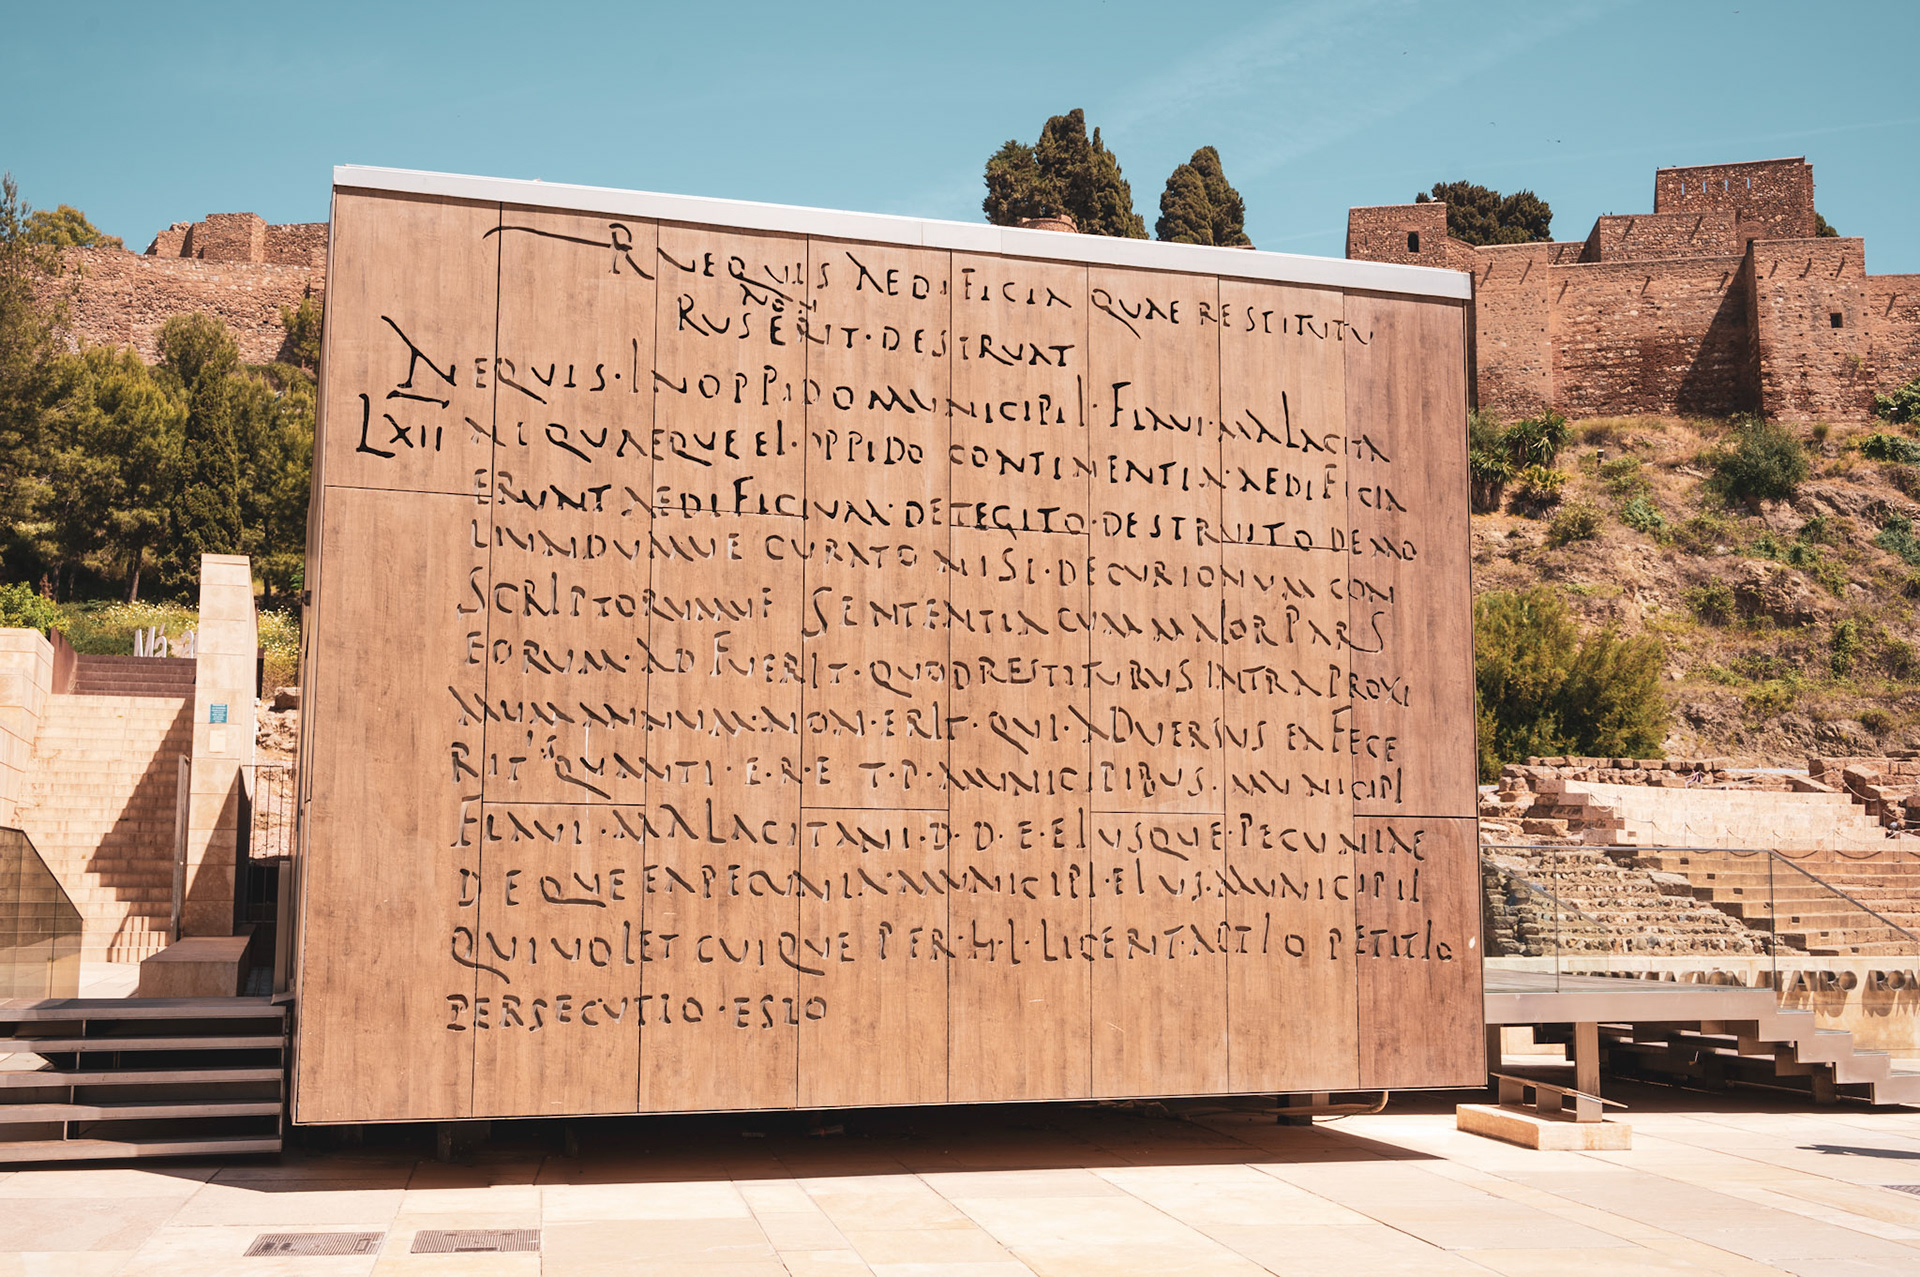 R NEQUIS AEDIFICIA QUAE RESTITUTU
RUS NON ERIT·DESTRUAT
NEQUIS·IN OPPIDO MUNICIPI·FLAVI·MALACITA
LXII NI QUAEQUE EI·OPPIDO CONTINENTIA·AEDIFICIA
ERUNT AEDIFICIUM·DETEGITO·DESTRUITO DEMO
LIUNDUMUE CURATO NISI·DECURIONUM CON
SCRIPTORUMUE SENTENTIA CUM MAIOR PARS
EORUM·AD FUERIT·QUOD RESTITURUS INTRA PROXI
MUM ANNUM·NON·ERIT·QUI·ADUERSUS EA FECE
RIT IS QUANTI·E·R·E T·P·MUNICIPIBUS·MUNICIPI
FLAVI·MALACITANI·D·D·E·EIUSQUE·PECUNIAE
DEQUE EA PECUNIA·MUNICIPI·EIUS·MUNICIPII
QUI UOLET CUIQUE PER·H·L·LICEBIT·ACTIO PETITIO
PERSECUTIO·ESTO
TEATRO ROM